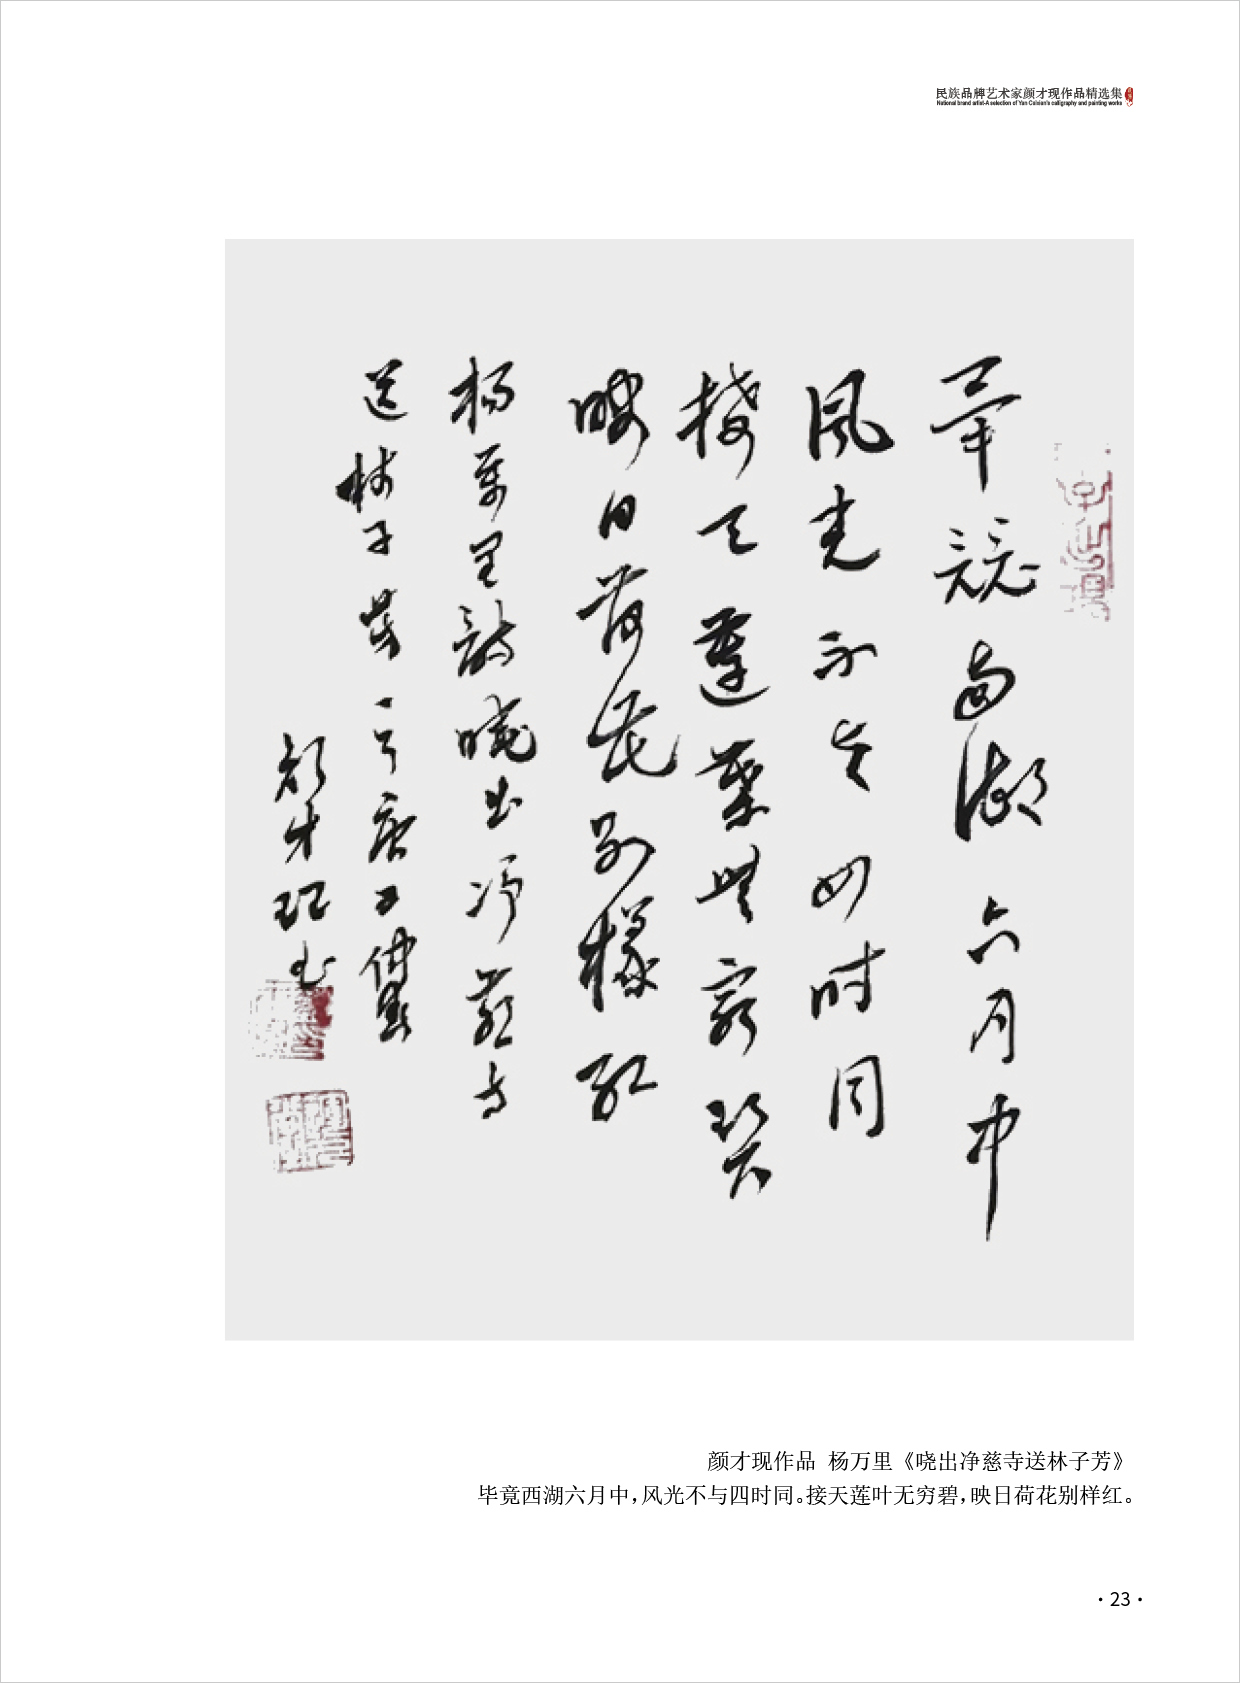 民族品牌艺术家颜才现作品精选集
National brand artist-A selection of Yan Caixian's calligraphy and painting works
畢竟西湖六月中
風光不与四时同
接天蓮葉無窮碧
映日荷花别樣紅
楊萬里詩曉出淨慈寺
送林子芳
顏才現书
颜才现作品 杨万里《哓出净慈寺送林子芳》
毕竟西湖六月中，风光不与四时同。接天莲叶无穷碧，映日荷花别样红。
·23·